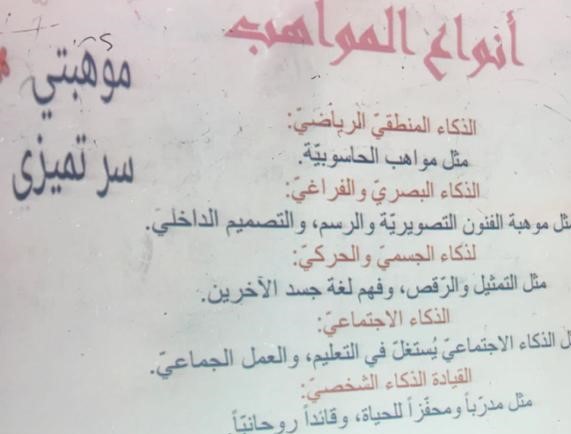 أنواع المواهب
موهبتي
سر تميزي
الذكاء المنطقيّ الرياضيّ:
مثل مواهب الحاسوبيّة.
الذكاء البصريّ والفراغيّ:
مثل موهبة الفنون التصويريّة والرسم، والتصميم الداخليّ.
لذكاء الجسميّ والحركيّ:
مثل التمثيل والرّقص، وفهم لغة جسد الآخرين.
الذكاء الاجتماعيّ:
ل الذكاء الاجتماعيّ يُستغلّ في التعليم، والعمل الجماعيّ.
القيادة الذكاء الشخصيّ:
مثل مدرّباً ومحفّزاً للحياة، وقائداً روحانيّاً.